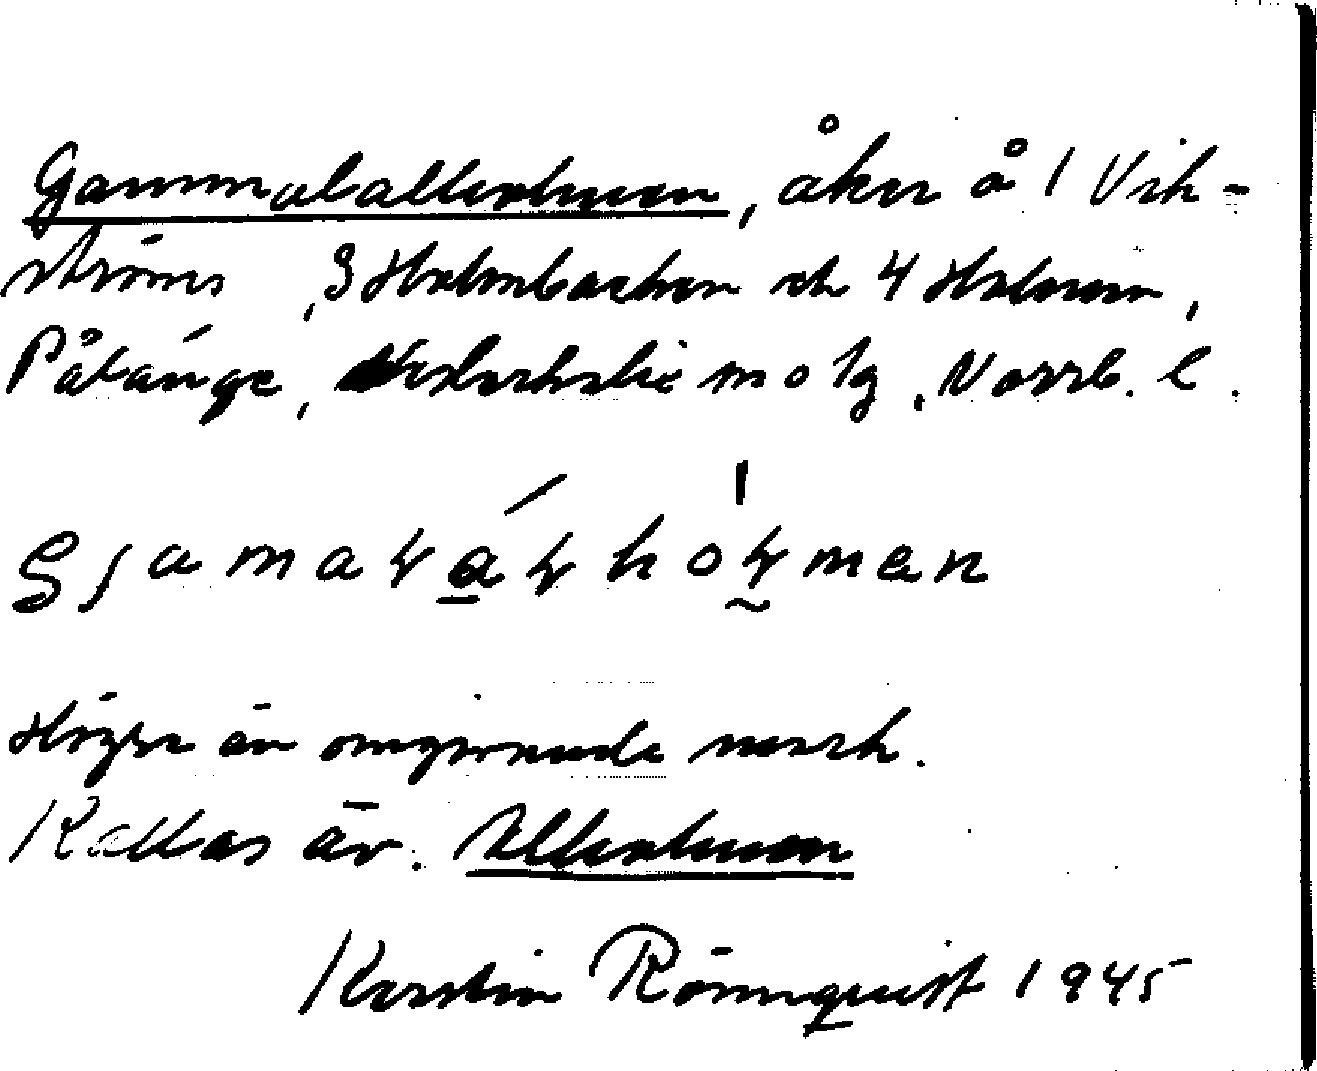 Gammalallerholmen, åker å 1 Vik-
ströms, 3 Holmbacken och 4 Holmen,
Pålänge, Nederkalix molg, Norrb. l.
Högre än omgivande mark.
Kallas äv. Allerholmen
Kerstin Rönnquist 1945